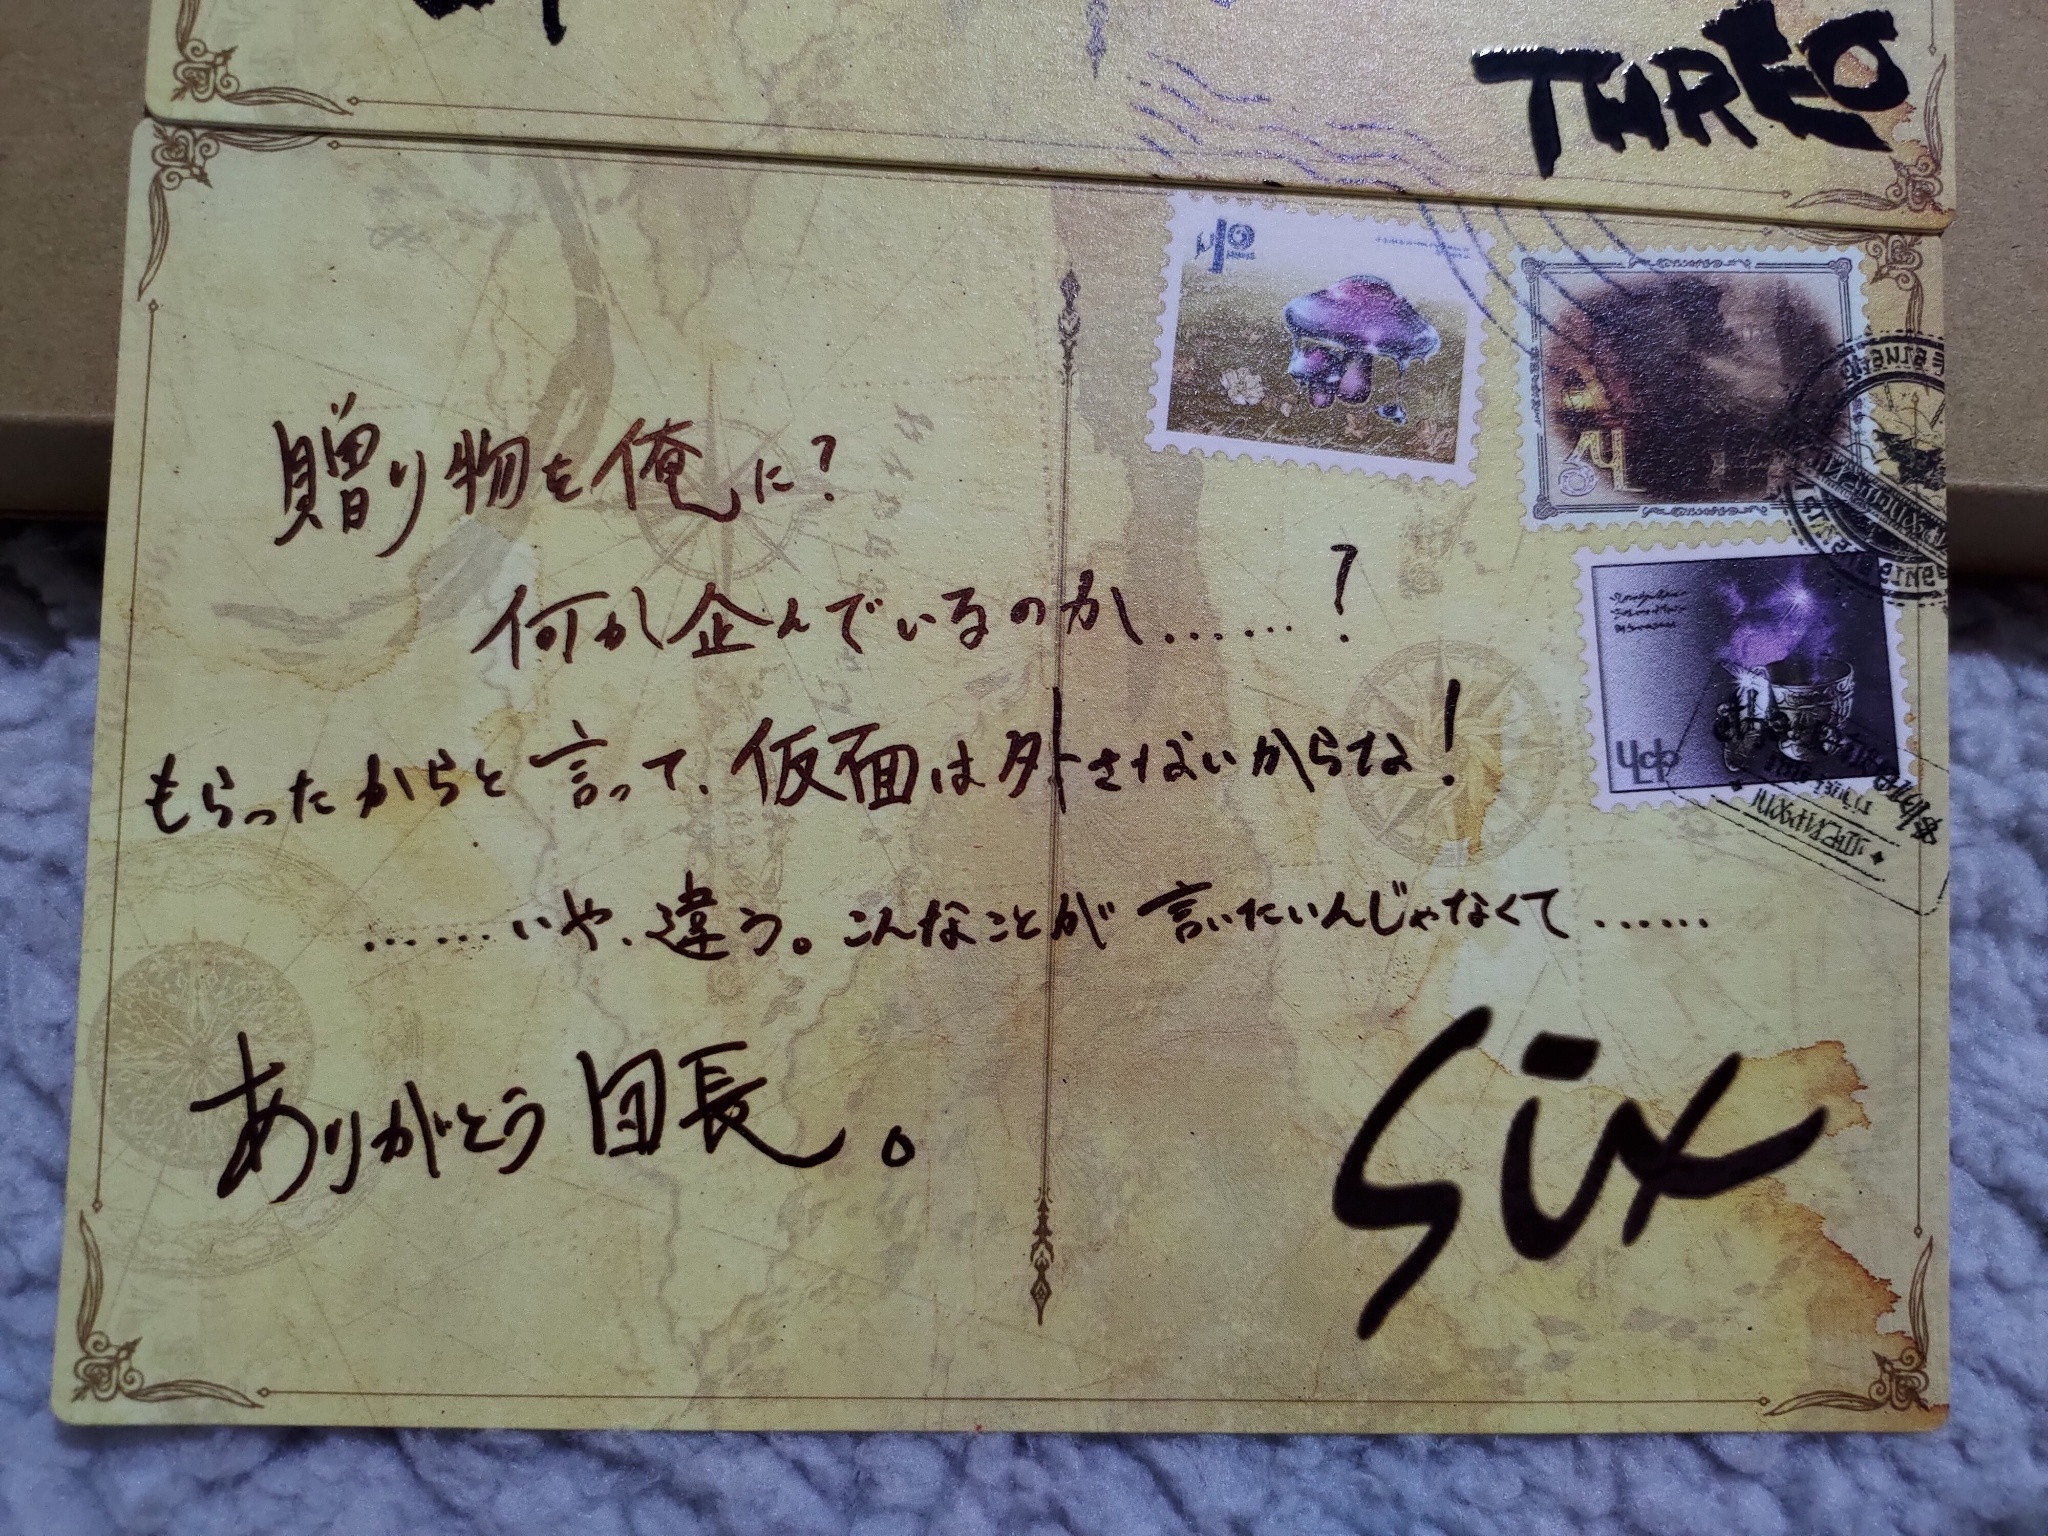 THREO
贈り物を俺に?
何か企んでいるのか……?
もらったからと言って、仮面は外さないからな!
……いや、違う。こんなことが言いたいんじゃなくて……
ありがとう団長。
Six